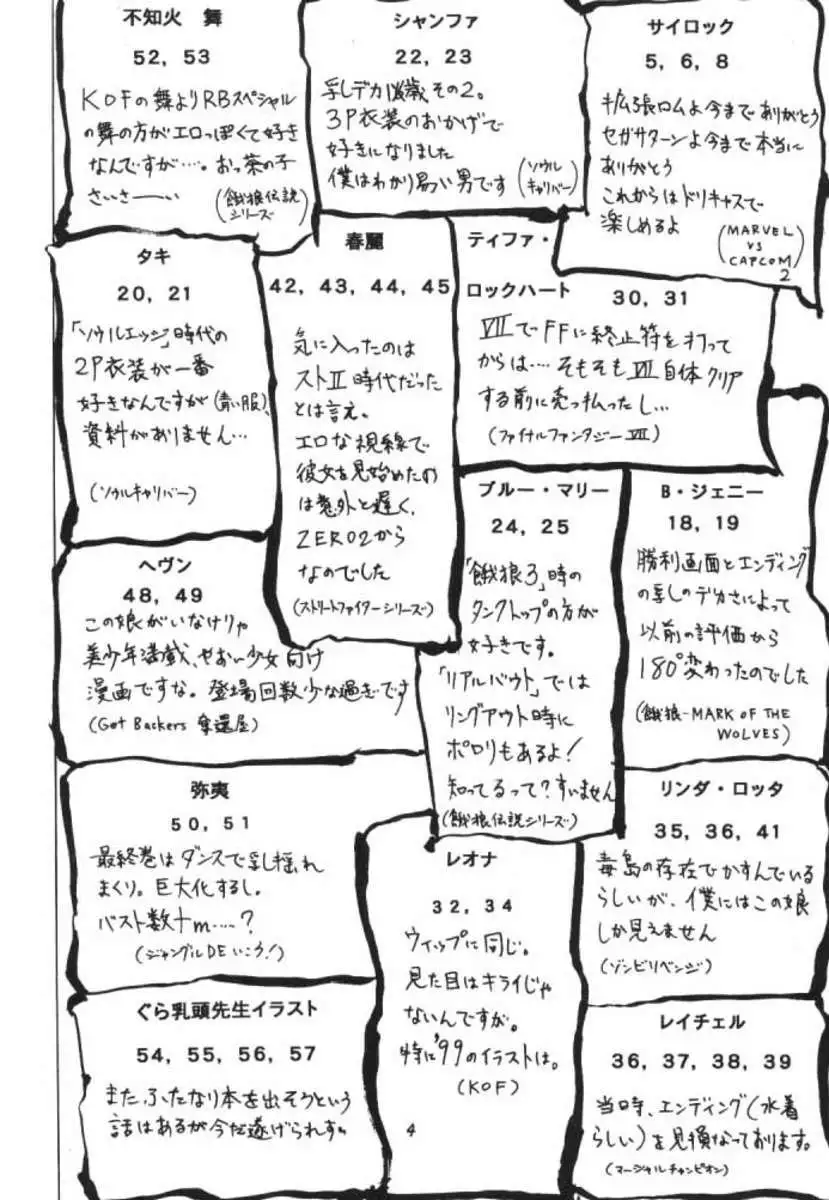 不知火 舞
52, 53
KOFの舞よりRBスペシャル
の舞の方がエロっぽくて好き
なんですが…. おっ茶の子
さいさーーい
(餓狼伝説シリーズ)
シャンファ
22, 23
乳しデカ 歳その2。
3P衣装のおかげで
好きになりました
僕はわかり易い男です
(ソウルキャリバー)
サイロック
5, 6, 8
拡張ロムよ今までありがとう
セガサターンよ今まで本当に
ありがとう
これからはドリキャスで
楽しめるよ
(MARVEL
VS
CAPCOM
2)
タキ
20, 21
「ソウルエッジ」時代の
2P衣装が一番
好きなんですが(青い服)、
資料がありません…
(ソウルキャリバー)
春麗
42, 43, 44, 45
気に入ったのは
ストII時代だった
とは言え。
エロな視線で
彼女を見始めたの
は意外と遅く、
ZERO2から
なのでした
(ストリートファイターシリーズ)
ティファ・
ロックハート 30, 31
VIIでFFに終止符を打って
からは…. そもそもVII自体クリア
する前に売っ払ったし…
(ファイナルファンタジーVII)
ヘヴン
48, 49
この娘がいなけりゃ
美少年満載、やおい少女向け
漫画ですな。登場回数少な過ぎです
(Get Backers 奪還屋)
ブルー・マリー
24, 25
「餓狼3」時の
タンクトップの方が
好きです。
「リアルバウト」では
リングアウト時に
ポロリもあるよ!
知ってるって?すいません
(餓狼伝説シリーズ)
B・ジェニー
18, 19
勝利画面とエンディング
の乳しのデカさによって
以前の評価から
180°変わったのでした
(餓狼-MARK OF THE
WOLVES)
弥夷
50, 51
最終巻はダンスで乳し揺れ
まくり。巨大化するし。
バスト数十m….. ?
(ジャングルDEいこう!)
レオナ
32, 34
ウィップに同じ。
見た目はキライじゃ
ないんですが。
特に'99のイラストは。
(KOF)
リンダ・ロッタ
35, 36, 41
毒島の存在でかすんでいる
らしいが、僕にはこの娘
しか見えません
(ゾンビリベンジ)
ぐら乳頭先生イラスト
54, 55, 56, 57
また、ふたなり本を出そうという
話はあるが今だ遂げられず。
レイチェル
36, 37, 38, 39
当時、エンディング(水着
らしい)を見損なっております。
(マーシャルチャンピオン)
4